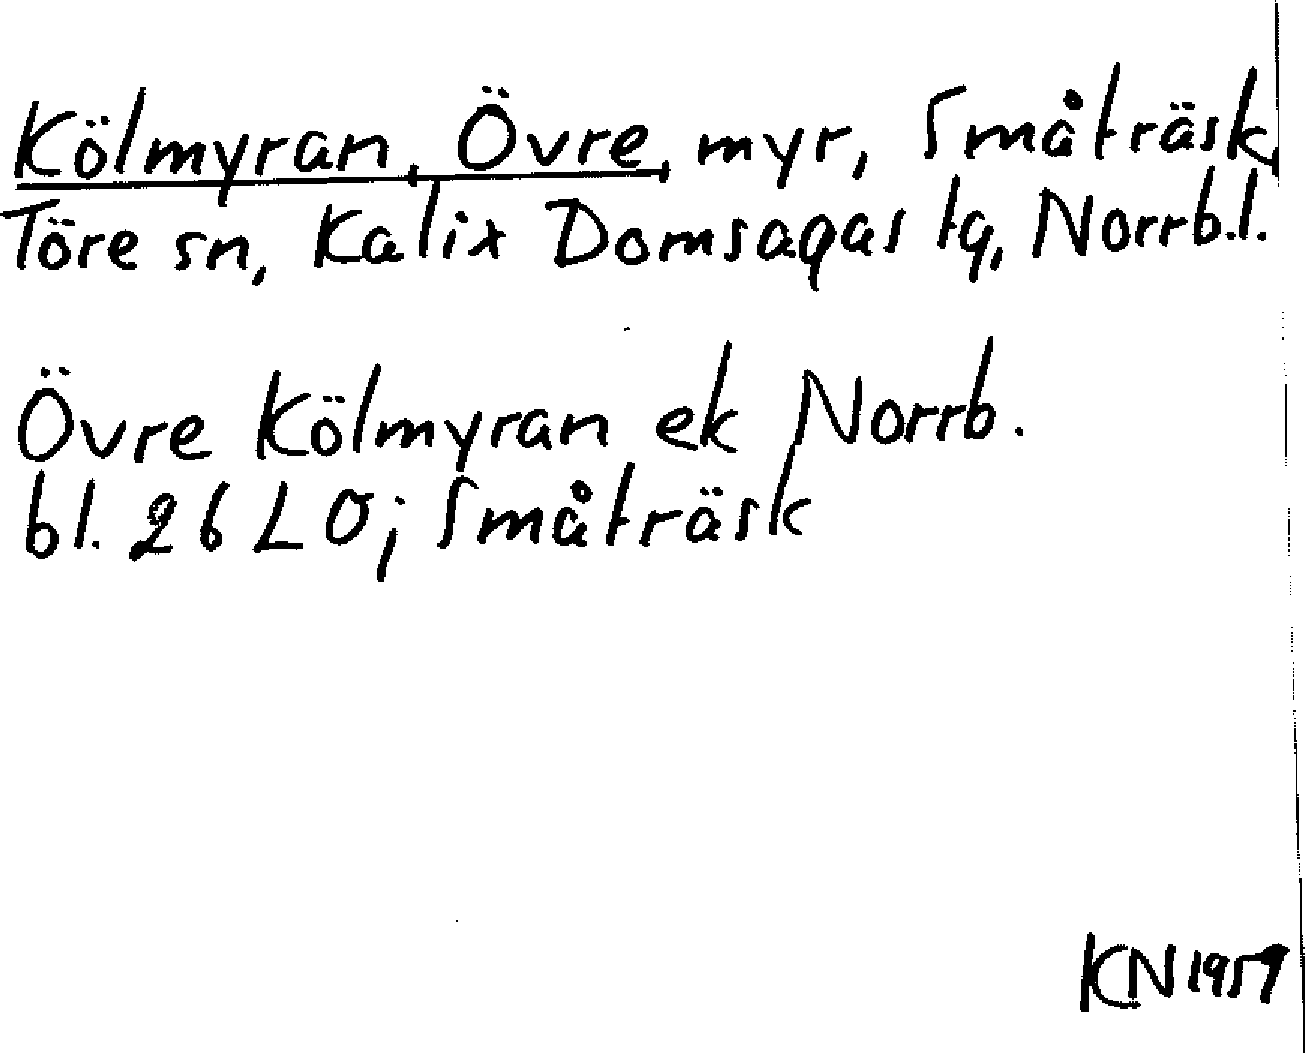 Kölmyran, Övre, myr, Småträsk,
Töre sn, Kalix Domsagas tg, Norrb.l.
Övre Kölmyran ek Norrb.
bl. 26 LO; Småträsk
KN 1959